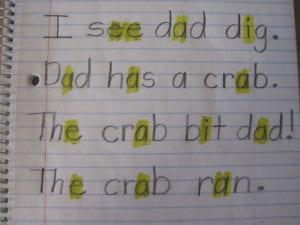 I see dad dig.
Dad has a crab.
The crab bit dad!
The crab ran.